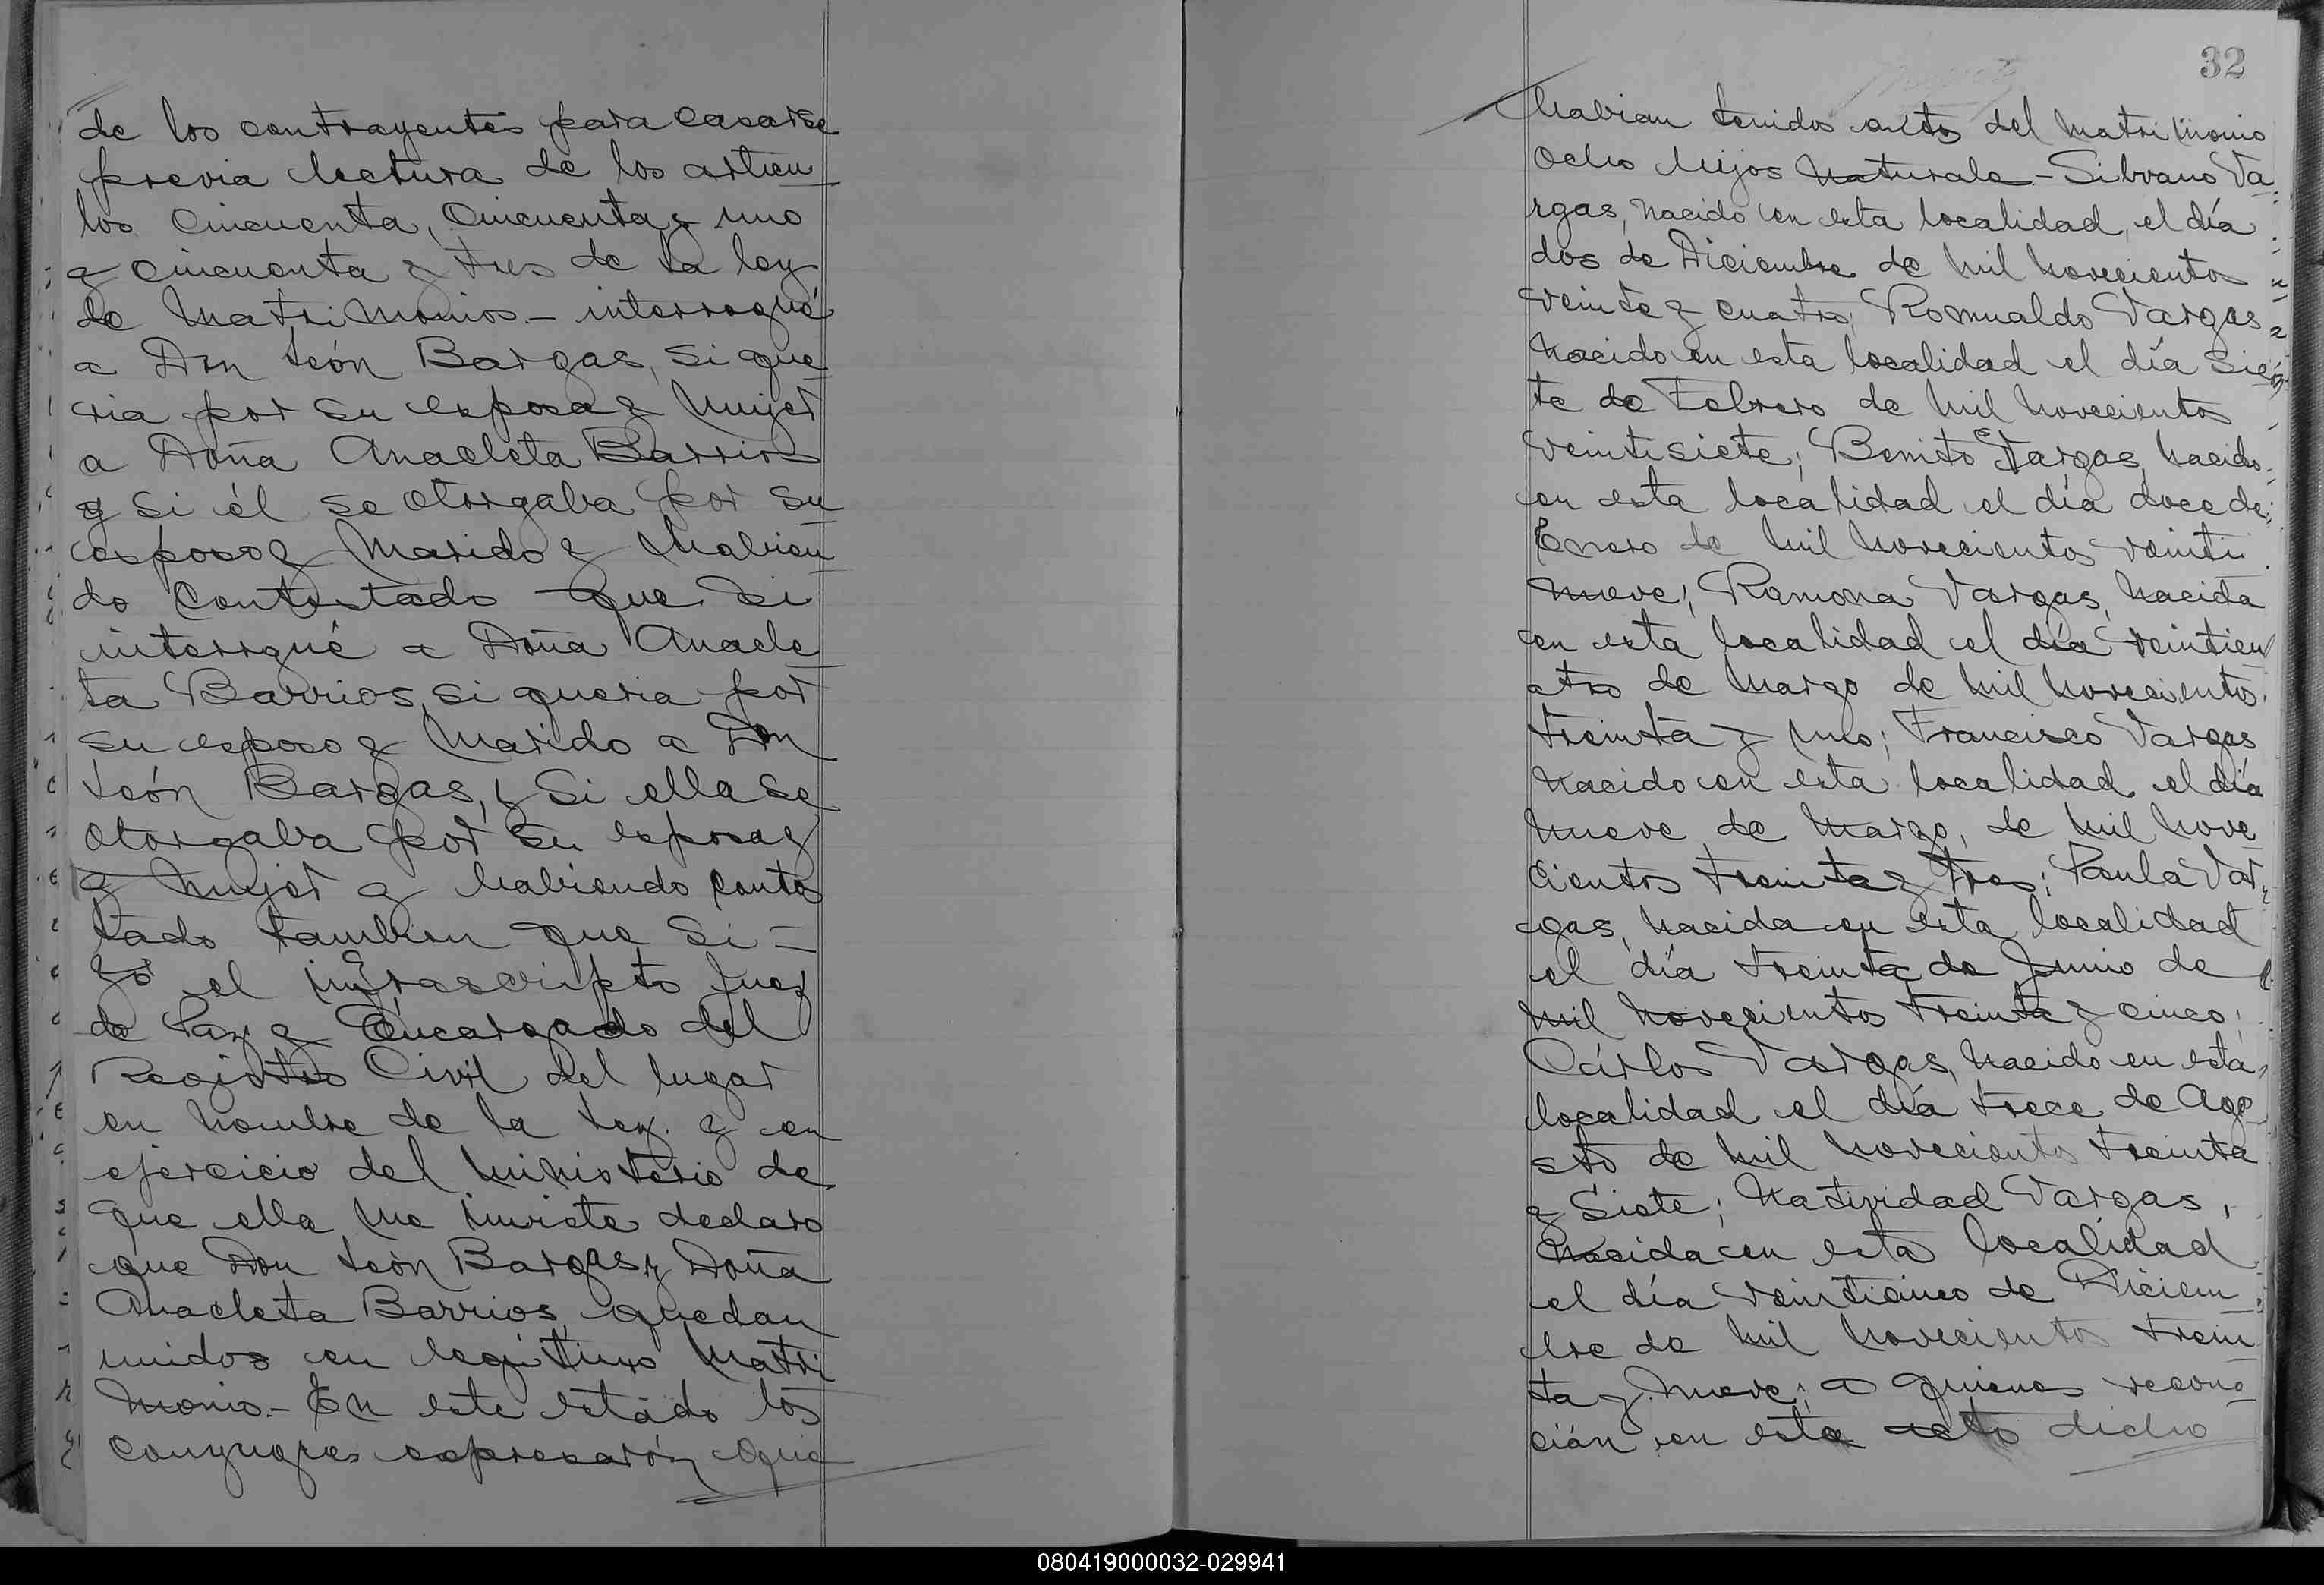 de los contrayentes para casarse
previa lectura de los articu
los Cincuenta, Cincuenta y uno
y cincuenta y tres de la ley
de Matrimonios - interrogué
a Don León Bargas, si que
ria por su esposa y Mujer
a Doña Anacleta Barrios
y si él se otorgaba por su
esposo y Marido y habien
do Contestado que si
interrgué a Doña Anacle
ta Barrios, si queria por
su esposo y Marido a Don
León Bargas, y si ella se
otorgaba por su esposa y
y Mujer y habiendo contes
tado tambien que Si -
Yo el infrascripto Juez
de Paz y Encargado del
Registro Civil del lugar
en nombre de la Ley. y en
ejercicio del Ministerio de
que ella me inviste declaro
que Don León Bargas y Doña
Anacleta Barrios, quedan
unidos en legitimo Matri
monio.- En este estado los
conyuges expresarón que
32
habian tenidos antes del Matrimonio
Ocho hijos Naturale - Silvano Va
rgas, nacido en esta localidad, el día
dos de Diciembre de mil novecientos
veinte y cuatro; Romualdo Vargas
Nacido en esta localidad el día sie
te de Febrero de mil novecientos
veintisiete; Benito Vargas, nacido
en esta localidad el día doce de
Enero de mil novecientos veinti
nueve; Ramona Vargas, nacida
en esta localidad el día veinticu
atro de Marzo de mil novecientos
treinta y uno; Francisco Vargas
Nacido en esta localidad el día
nueve de Marzo, de mil nove
cientos treinta y tres; Paula Var
gas, nacida en esta localidad
el día treinta de Junio de
mil novecientos treinta y cinco;
Cárlos Vargas, nacido en esta
localidad el día trece de Ago
sto de mil novecientos treinta
y Siete; Natividad Vargas,
Nacida en esta localidad
el día veinticinco de Diciem
bre de mil novecientos trein
ta y nueve; a quienes recono
cián en este acto dicho
080419000032-029941